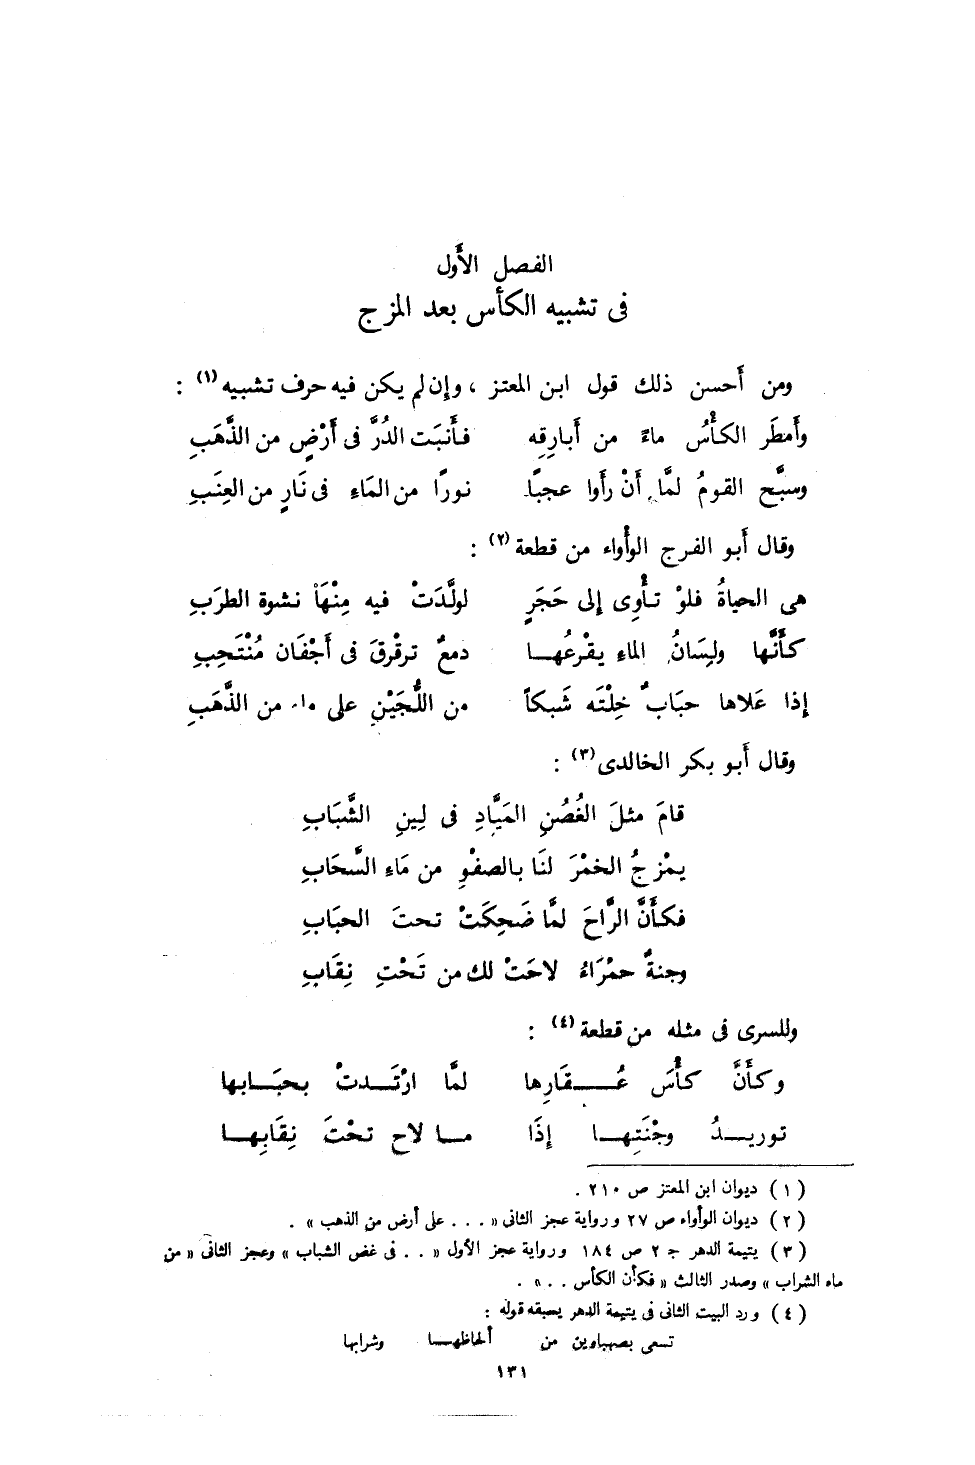 الفصل الأَول
فى تشبيه الكأْس بعد المزج
ومن أَحسن ذلك قول ابن المعتز ، وإن لم يكن فيه حرف تشبيه (١) :
وأَمطَر الكأْسُ ماءً من أَبارِقِه فأَنبَت الدُرَّ فى أَرْضٍ من الذَّهَبِ
وسبَّح القومُ لمَّا أَنْ رأَوا عجبًا نورًا من المَاءِ فى نَارٍ من العِنَبِ
وقال أَبو الفرج الوأْواء من قطعة (٢) :
هى الحياةُ فلوْ تأْوِى إلى حَجَرٍ لولَّدَتْ فيه مِنْهَا نشوة الطرَبِ
كأَنَّها ولِسَانُ الماءِ يقْرعُهـا دمعٌ ترقْرقَ فى أَجْفَان مُنْتَحِبِ
إذا عَلاها حبَابٌ خِلْتَه شَبكاً من اللُّجَيْنِ على ماء من الذَّهَبِ
وقال أَبو بكر الخالدى (٣) :
قامَ مثلَ الغُصُنِ الميَّادِ فى لِينِ الشَّبَابِ
يمْزجُ الخمْرَ لنَا بالصفْوِ من مَاءِ السَّحَابِ
فكأَنَّ الرَّاحَ لمَّا ضَحِكَتْ تحتَ الحبَابِ
وجنةٌ حمْرَاءُ لاحَتْ لك من تَحْتِ نِقَابِ
وللسرى فى مثله من قطعة (٤) :
وكأَنَّ كأْسَ عُـــقَارِها لمَّا ارْتَـدتْ بحبَـابها
توريـــدُ وجْنَتِهـا إذَا مـا لاح تحْتَ نِقَابِهـا
(١) ديوان ابن المعتز ص ٢١٠ .
(٢) ديوان الوأواء ص ٢٧ ورواية عجز الثانى « . . . على أرض من الذهب » .
(٣) يتيمة الدهر جـ ٢ ص ١٨٤ ورواية عجز الأول « . . فى غض الشباب » وعجز الثانى « من
ماء الشراب » وصدر الثالث « فكأن الكأس . . » .
(٤) ورد البيت الثانى فى يتيمة الدهر يسبقه قوله :
تسعى بصهباوين من ألحاظهـا وشرابها
١٣١